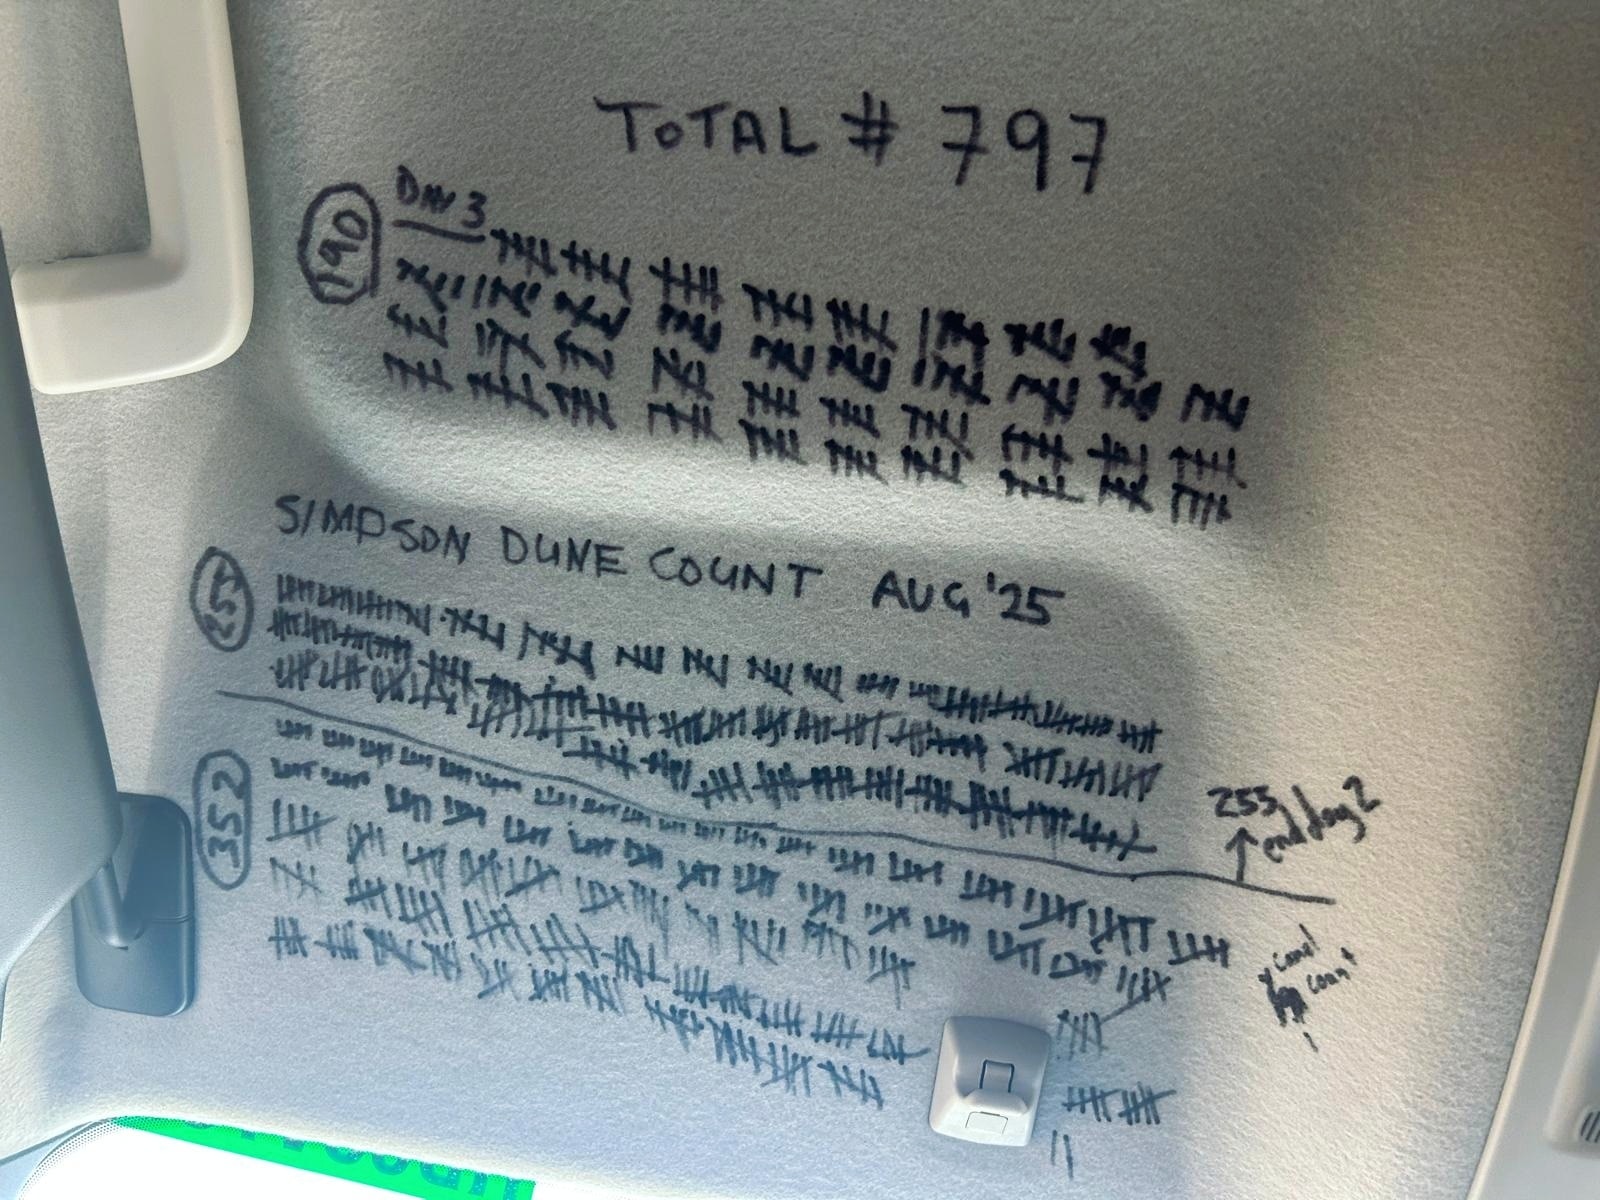 TOTAL # 797
DAY 3
190
SIMPSON DUNE COUNT AUG '25
255
255
end day 2
352
camel
count